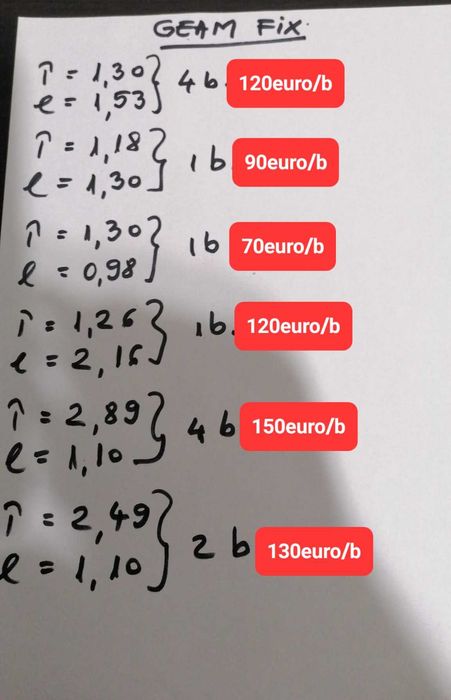 GEAM FIX.
Î = 1,30 } 4 b. 120euro/b
l = 1,53
Î = 1,18 } 1 b 90euro/b
l = 1,30
Î = 1,30 } 1b 70euro/b
l = 0,98
Î = 1,26 } 1b. 120euro/b
l = 2,16
Î = 2,89 } 4 b 150euro/b
l = 1,10
Î = 2,49 } 2 b 130euro/b
l = 1,10